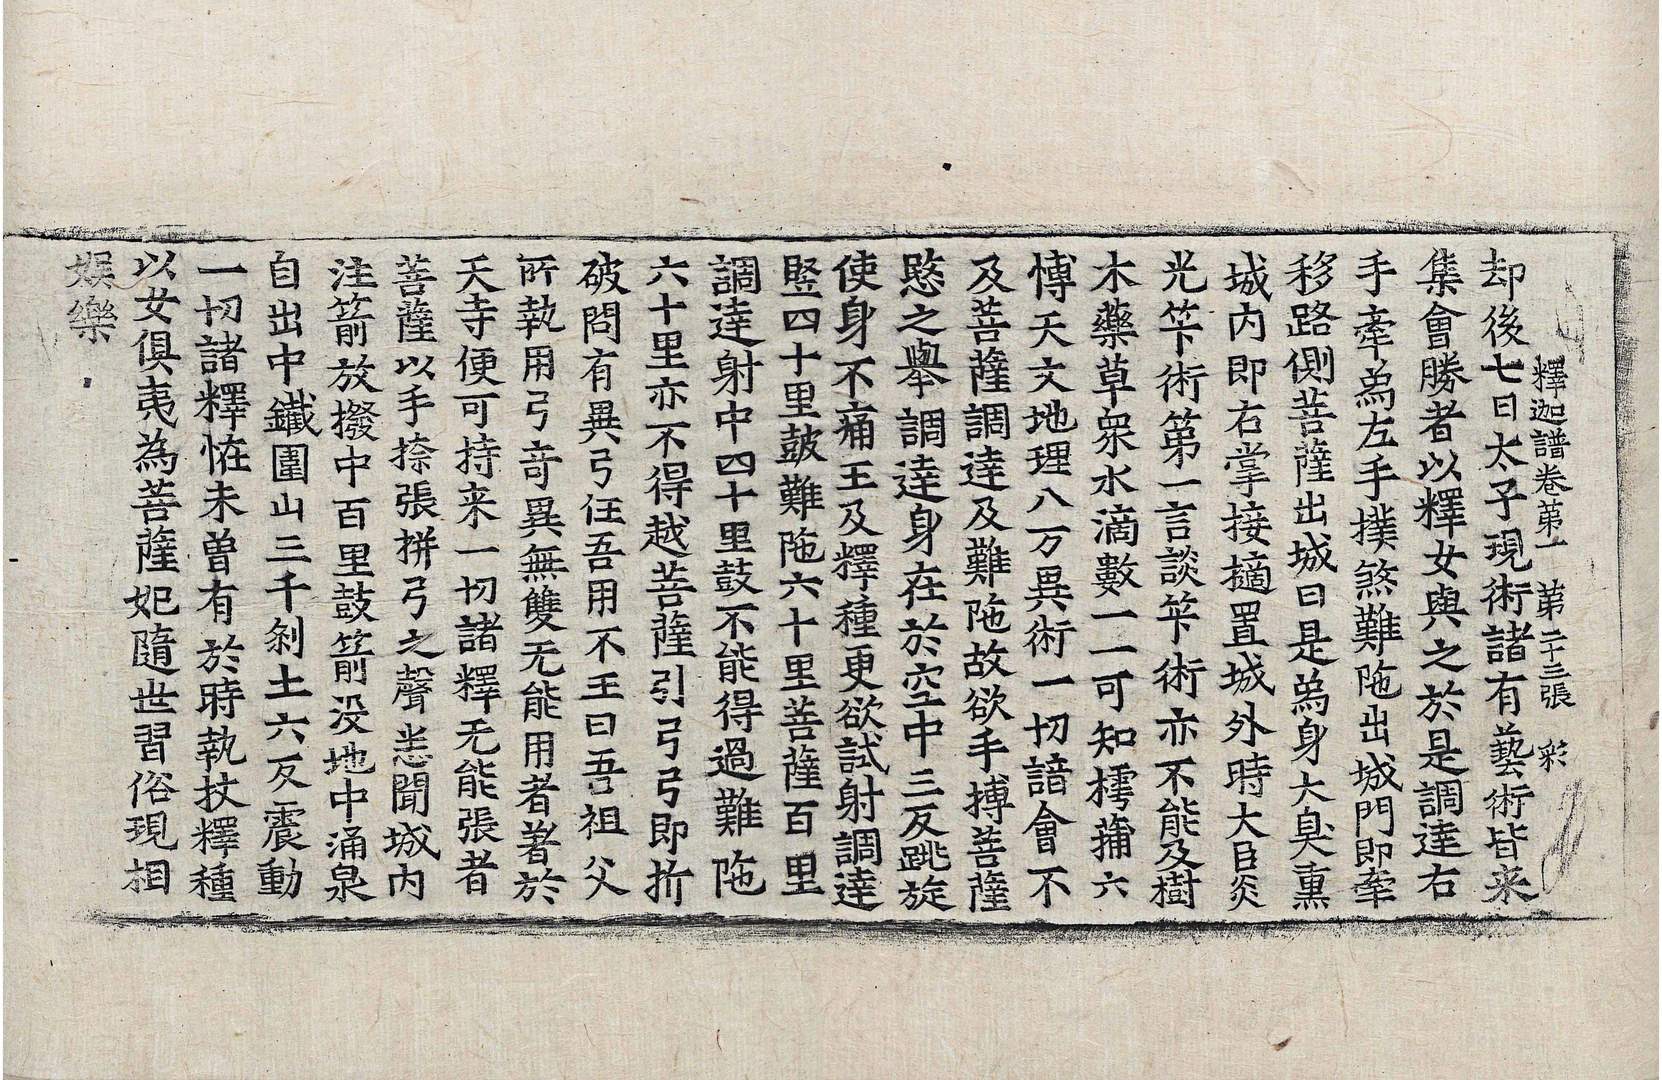 釋迦譜卷第一 第二十三張 彩
却後七日太子現術諸有藝術皆来
集會勝者以釋女與之於是調達右
手牽爲左手撲煞難陁出城門即牽
移路側菩薩出城曰是爲身大臭熏
城内即右掌接擿置城外時大臣炎
光筭術第一言談筭術亦不能及樹
木藥草衆水滴數一一可知樗蒱六
愽天文地理八万異術一切諳會不
及菩薩調達及難陁故欲手搏菩薩
愍之舉調達身在於空中三反跳旋
使身不痛王及釋種更欲試射調達
竪四十里鼓難陁六十里菩薩百里
調達射中四十里鼓不能得過難陁
六十里亦不得越菩薩引弓弓即折
破問有異弓任吾用不王曰吾祖父
所執用弓竒異無雙无能用者著於
天寺便可持来一切諸釋无能張者
菩薩以手捺張拼弓之聲悉聞城内
注箭放撥中百里鼓箭没地中涌泉
自出中鐵圍山三千剎土六反震動
一切諸釋恠未曽有於時執杖釋種
以女俱夷為菩薩妃隨世習俗現相
娛樂